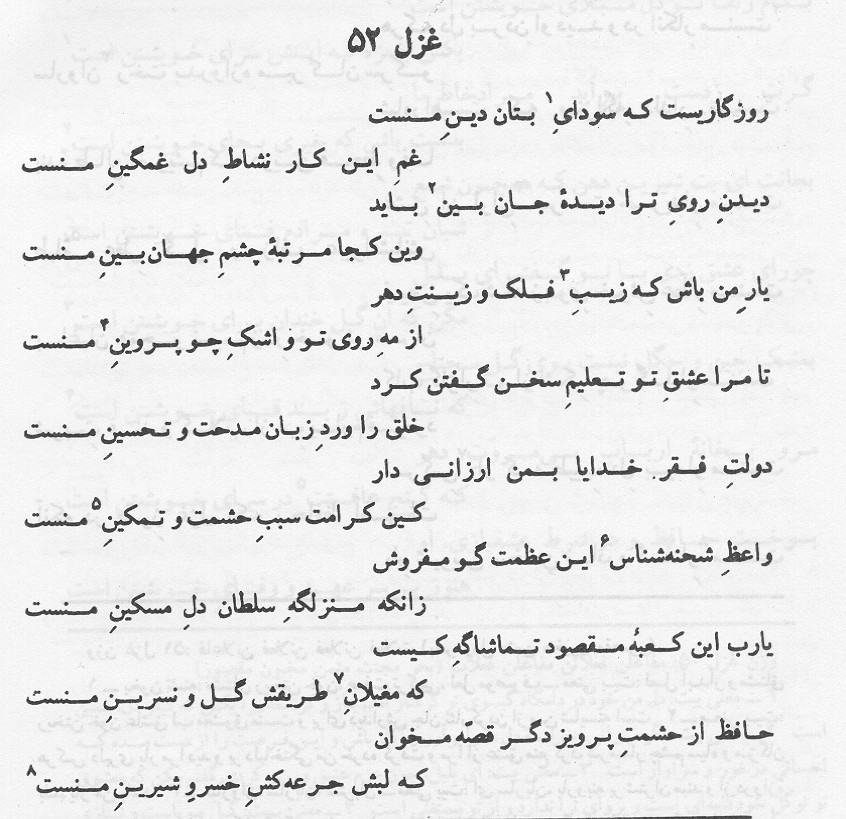 غزل ۵۲
روزگاریست که سودایِ۱ بتان دینِ منست
غمِ این کار نشاطِ دل غمگینِ منست
دیدنِ رویِ ترا دیدهٔ جان بین۲ باید
وین کجا مرتبهٔ چشمِ جهان‌بینِ منست
یارِ من باش که زیبِ۳ فلک و زینتِ دهر
از مهِ روی تو و اشکِ چو پروینِ۴ منست
تا مرا عشقِ تو تعلیمِ سخن گفتن کرد
خلق را وردِ زبان مدحت و تحسینِ منست
دولتِ فقر خدایا بمن ارزانی دار
کین کرامت سببِ حشمت و تمکینِ۵ منست
واعظِ شحنه‌شناس۶ این عظمت گو مفروش
زانکه منزلگهِ سلطان دلِ مسکینِ منست
یارب این کعبهٔ مقصود تماشاگهِ کیست
که مغیلانِ۷ طریقش گل و نسرینِ منست
حافظ از حشمتِ پرویز دگر قصّه مخوان
که لبش جرعه‌کشِ خسروِ شیرینِ منست۸